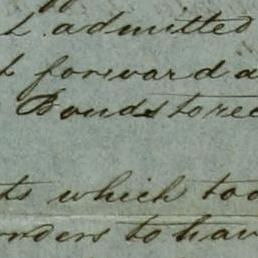 admitted
forward a
Bonds to rec
ts which too
orders to hav